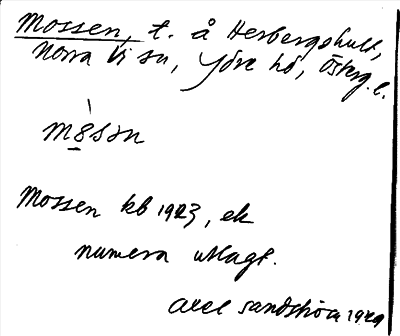 Mossen, t. å Herbergshult,
Norra Vi sn, Ydre hd, Österg. l.
m8̱sən
Mossen kb 1923, ek
numera utlagt.
Axel Sandström 1929